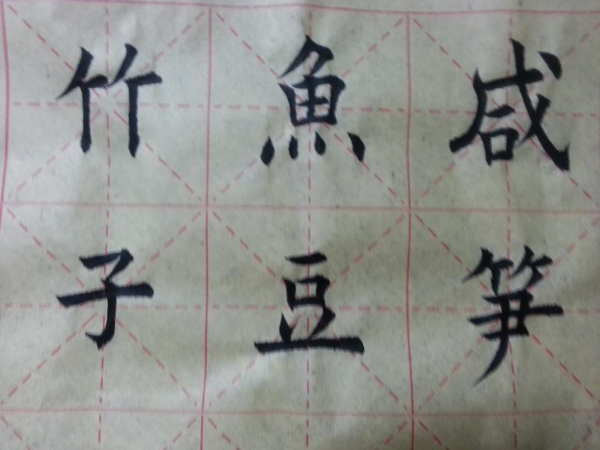 咸魚竹
笋豆子